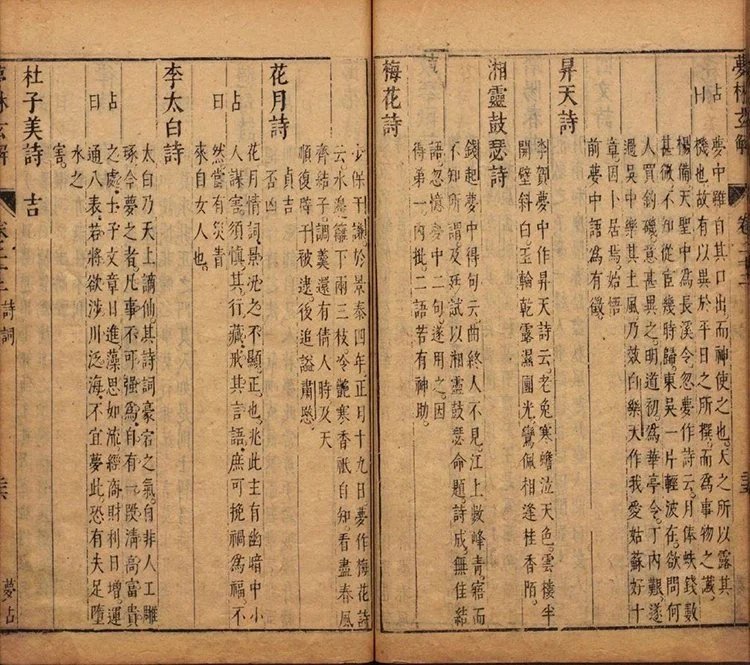 夢林玄解
卷二十三
占曰
夢中雖自其口出而神使之也天之所以露其
機也故有以異於平日之所撰而為事物之讖
楊備天聖中為長溪令忽夢作詩云月俸蚨錢數
甚微不知從宦幾時歸東吳一片輕波在欲問何
人買釣磯意甚異之明道初為華亭令丁內艱遂
過吳中樂其土風乃效白樂天作我愛姑蘇好十
章因卜居焉始悟
前夢中語為有徵
昇天詩
李賀夢中作昇天詩云老兔寒蟾泣天色雲樓半
開壁斜白玉輪乾露濕團光鸞佩相逢桂香陌
湘靈鼓瑟詩
錢起夢中得句云曲終人不見江上數峰青寤而
不知所謂及廷試以湘靈鼓瑟命題詩成無佳結
語忽憶夢中二句遂用之因
得第一內批二語若有神助
梅花詩
少保于謙於景泰四年正月十九日夢作梅花詩
云水邊籬下兩三枝冷艷寒香祇自知看盡春風
齊結子調羹還有倩人時及天
順復辟于被逮後追謚肅愍
花月詩
貞吉
否凶
占曰
花月情詞景況之不顯正也兆此主有幽暗中小
人謀害須慎其行藏戒其言語庶可挽禍為福不
然當有災眚
來自女人也
李太白詩
占曰
太白乃天上謫仙其詩詞豪宕之氣自非人工雕
琢今夢之者凡事不可強為自有一段清高富貴
之處士子文章日進藻思如流經商財利日增運
通八表若將欲涉川泛海不宜夢此恐有失足墮
水之
害
杜子美詩 吉
夢林玄解
卷二十三
詩詞
夢占